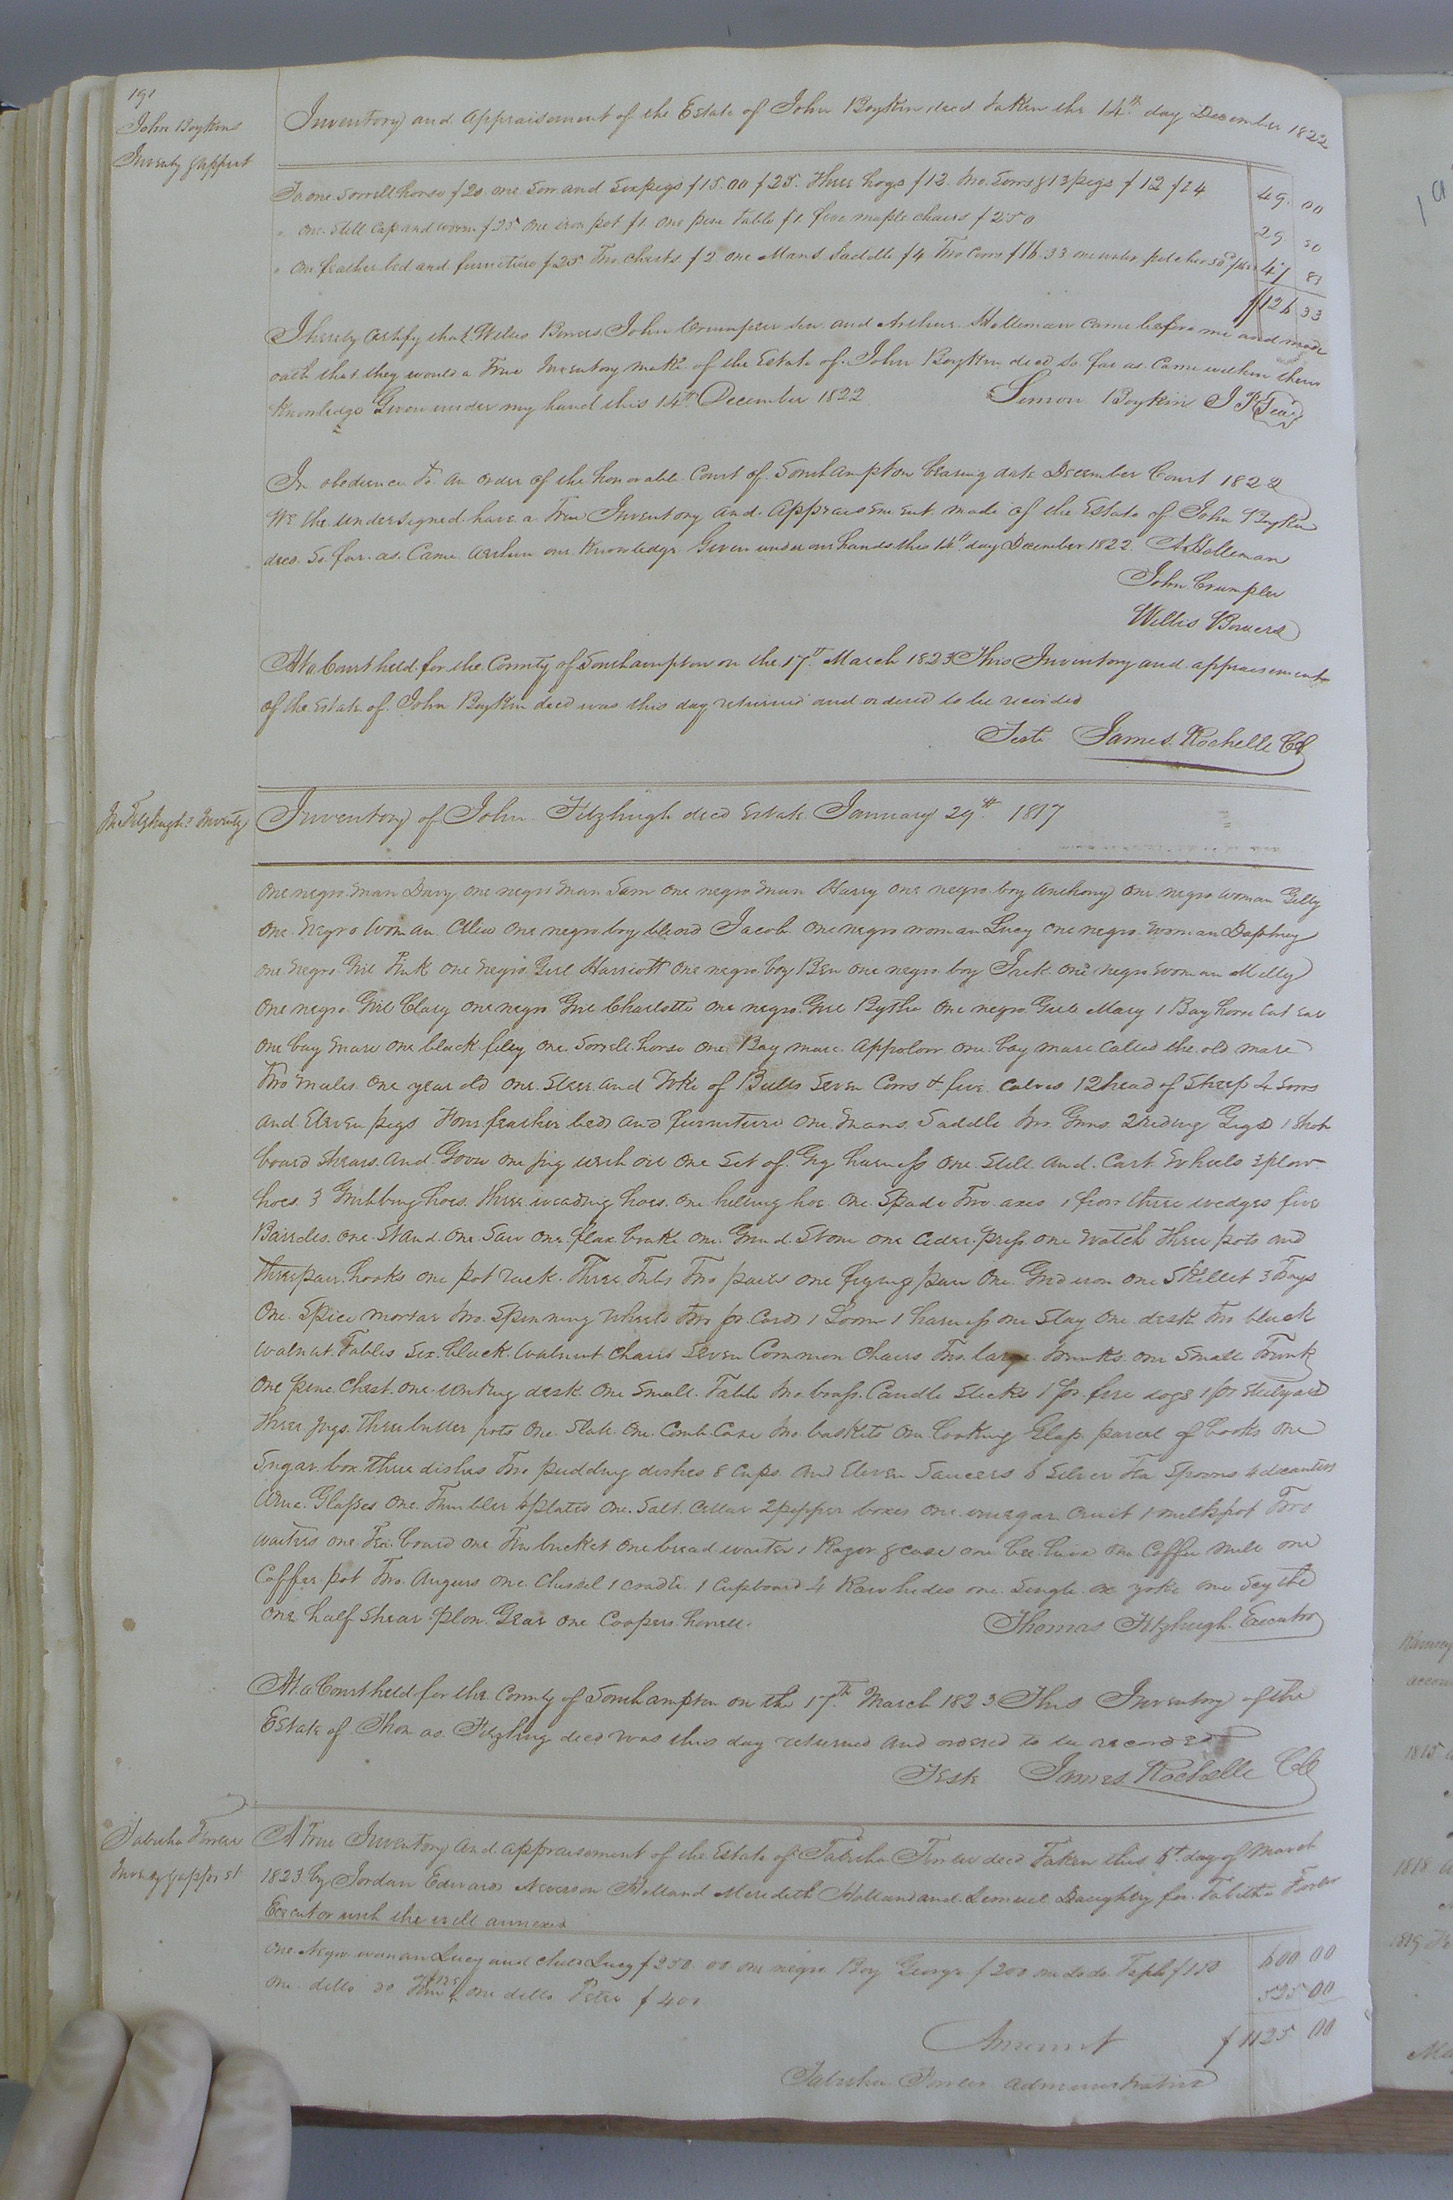 191
John Boykins
Inventy & apprt
Inventory and appraisement of the Estate of John Boykin decd taken the 14th day December 1822
To one Sorrell horse $20. one Sow and Six pigs $15.00 $25. Three hogs $12. two Sows & 13 pigs $12 $24 49. 00
" one Still Cap and worm $25 one iron pot $1. one pine table $1. five maple chairs $2.50 29 50
" One feather bed and furniture $25 Two chests $2 one Mans Saddle $4 Two Cows $16.33 one water pitcher 50 47 83
$126 33
I hereby certify that Willis Bowers John Crumpler Senr and Arthur Holleman came before me and made
oath that they would a True Inventory make of the Estate of John Boykin decd so far as came within their
Knowledge Given under my hand this 14th December 1822 Simon Boykin J P Seal
In obedience To an order of the honorable Court of Southampton bearing date December Court 1822
We the undersigned have a True Inventory and Appraisement made of the Estate of John Boykin
decd. So far as Came within our Knowledge Given under our hands this 14th day December 1822. A Holleman
John Crumpler
Willis Bowers
At a Court held for the County of Southampton on the 17th March 1823 This Inventory and appraisement
of the Estate of John Boykin decd was this day returned and ordered to be recorded
Teste James Rochelle CC
Jn Fitzhughs Inventy
Inventory of John Fitzhugh decd Estate January 29th 1817
One negro man Davy one negro man Sam one negro man Harry one negro boy Anthony one negro woman Gilly
One Negro Woman one negro boy Jacob one negro woman Lucy one negro woman Daphney
one negro Girl Pink one negro Girl Harriott one negro boy Ben one negro boy Jack one negro woman Milly
One negro Girl Clary one negro Girl Charlotte one negro Girl Bythe one negro Girle Mary 1 Bay horse Cut ear
One bay mare one black filey one Sorrell horse one Bay mare Appolow one bay mare called the old mare
Two mules one year old one Steer and Yoke of Bulls Seven Cows & five calves 12 head of Sheep 4 Sows
and Eleven pigs Four feather beds and furniture one mans Saddle two Guns 2 riding Gigs 1 Shot
board shears and one jug with oil one Set of Gig harness one Still and Cart wheels 3 plow
hoes 3 Grubbing hoes three weading hoes one hilling hoe one Spade Two axes 1 three wedges five
Barrels one Stand one Saw one flax brake one Grind Stone one cider press one Watch Three pots and
three pair hooks one pot rack Three Tubs Two pales one frying pan One Grid iron one Skillet 3 Trays
One Spice mortar two Spinning Wheels Two pr. Cards 1 Loom 1 harness one Slay one desk Two black
walnut Tables Six black Walnut Chairs Seven Common Chairs Two large Trunks one Small Trunk
One pine Chest one writing desk One Small Table two brass Candle sticks 1 pr. fire dogs 1 pr Stilyard
three jugs Three butter pots One Slate One Comb Case two baskets One looking Glass parcel of books one
Sugar box three dishes Two pudding dishes 8 cups and Eleven Saucers 6 Silver Tea Spoons 4 decanters
wine Glasses one Tumbler plates one Salt Cellar 2 pepper boxes one vinegar cruit 1 milk pot Two
waiters one Tea board one Tin bucket one bread waiter 1 Razor & case one bee hive one Coffee mill one
Coffee pot Two Augurs one Chissel 1 cradle 1 Cupboard 4 Raw hides one Single ox yoke one Scythe
One half Shear plow Gear one Coopers howell.
Thomas Fitzhugh Executor
At a Court held for the County of Southampton on the 17th March 1823 This Inventory of the
Estate of Thomas Fitzhug decd was this day returned and ordered to be recorded
Teste James Rochelle CC
Tabitha Fowler
Inventy & apprst
A True Inventory and appraisement of the Estate of Tabitha Fowler decd Taken this 6th day of March
1823 by Jordan Edwards Neverson Holland Meredith Holland and Lemuel Daughtry for Tabitha Fowler
Executor with the will annexed
One Negro woman Lucy and child Lucy $250 00 one negro Boy George $200 one do do $150 600 00
One ditto do $125 one ditto Peter $400 525 00
Amount $1125 00
Tabitha Fowler administratrix
1815
1818
1819